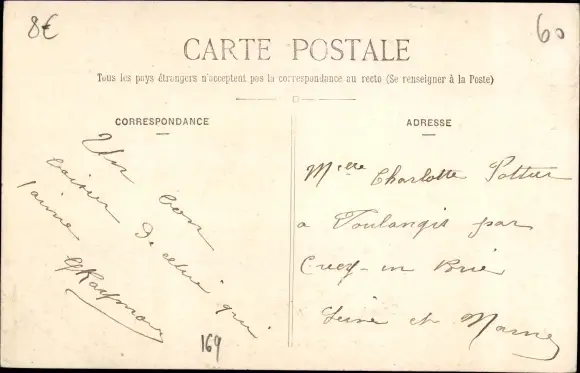 8€
60
CARTE POSTALE
Tous les pays étrangers n'acceptent pas la correspondance au recto (Se renseigner à la Poste)
CORRESPONDANCE
Un bon
baiser de celui qui
t'aime
GRaymon
ADRESSE
Melle Charlotte Pottier
a Voulangis par
Crecy-en Brie
Seine et Marne
164